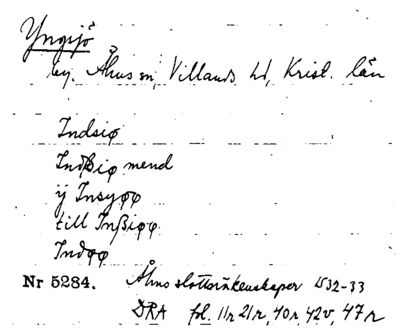 Yngsjö
by. Åhus sn, Villands hd, Krist. län
Indsiø
Indßiø mend
ij Insyøø
till Inßiøø
Indøø
Nr 5284. Åhus slottsräkenskaper 1532-33
DRA fol. 11r 21r, 40r 42v, 47r